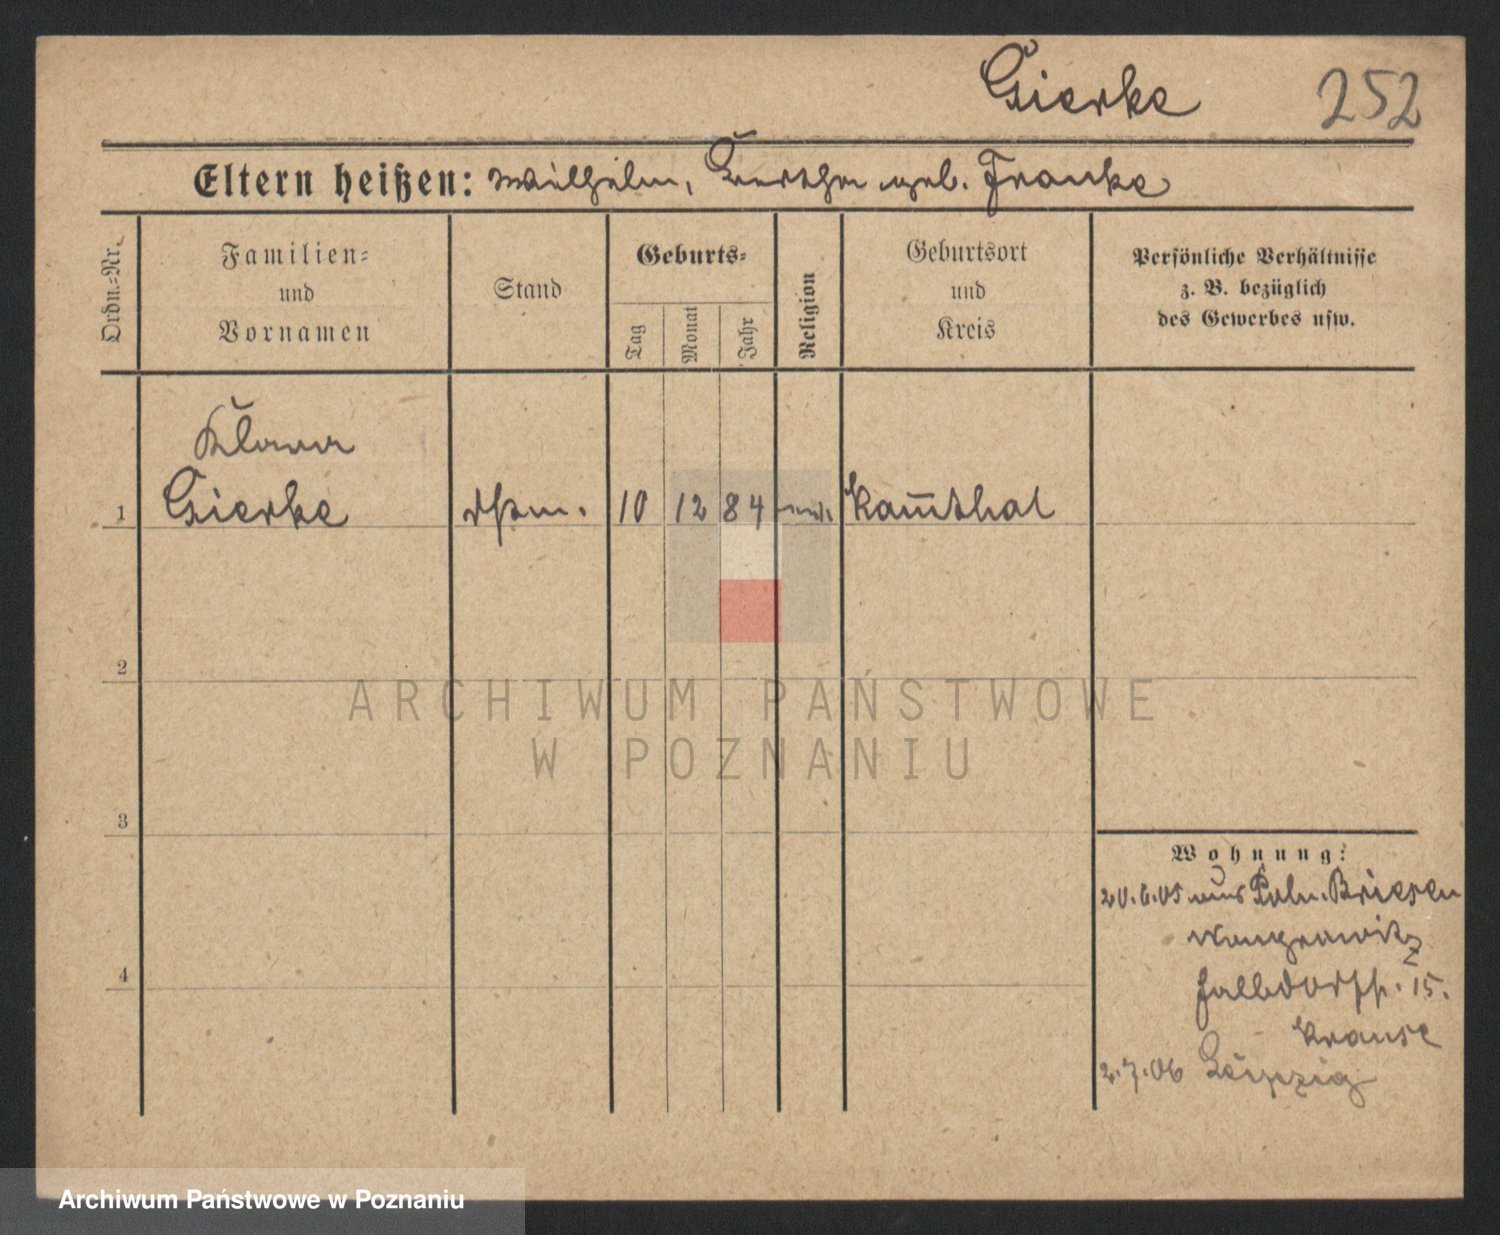 Gierke 252
Eltern heißen: Wilhelm, Bertha geb. Franke
Ordn.=Nr.
Familien=
und
Vornamen
Stand
Geburts=
Tag
Monat
Jahr
Religion
Geburtsort
und
Kreis
Persönliche Verhältnisse
z. B. bezüglich
des Gewerbes usw.
Klara
1 Gierke 10 12 84 Kamthal
2
3
4
Wohnung:
20.6.05 aus Poln. Briesen
Wongrowitz
Halbdorfstr. 15.
Krause
2.7.06 Leipzig
ARCHIWUM PAŃSTWOWE
W POZNANIU
Archiwum Państwowe w Poznaniu